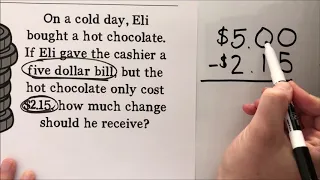 On a cold day, Eli
bought a hot chocolate.
If Eli gave the cashier a
five dollar bill, but the
hot chocolate only cost
$2.15, how much change
should he receive?
$5.00
-$2.15